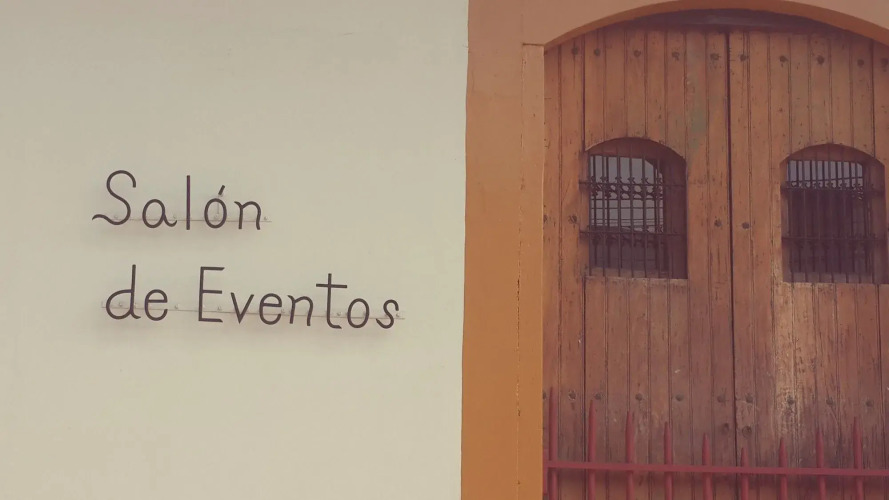 Salón
de Eventos